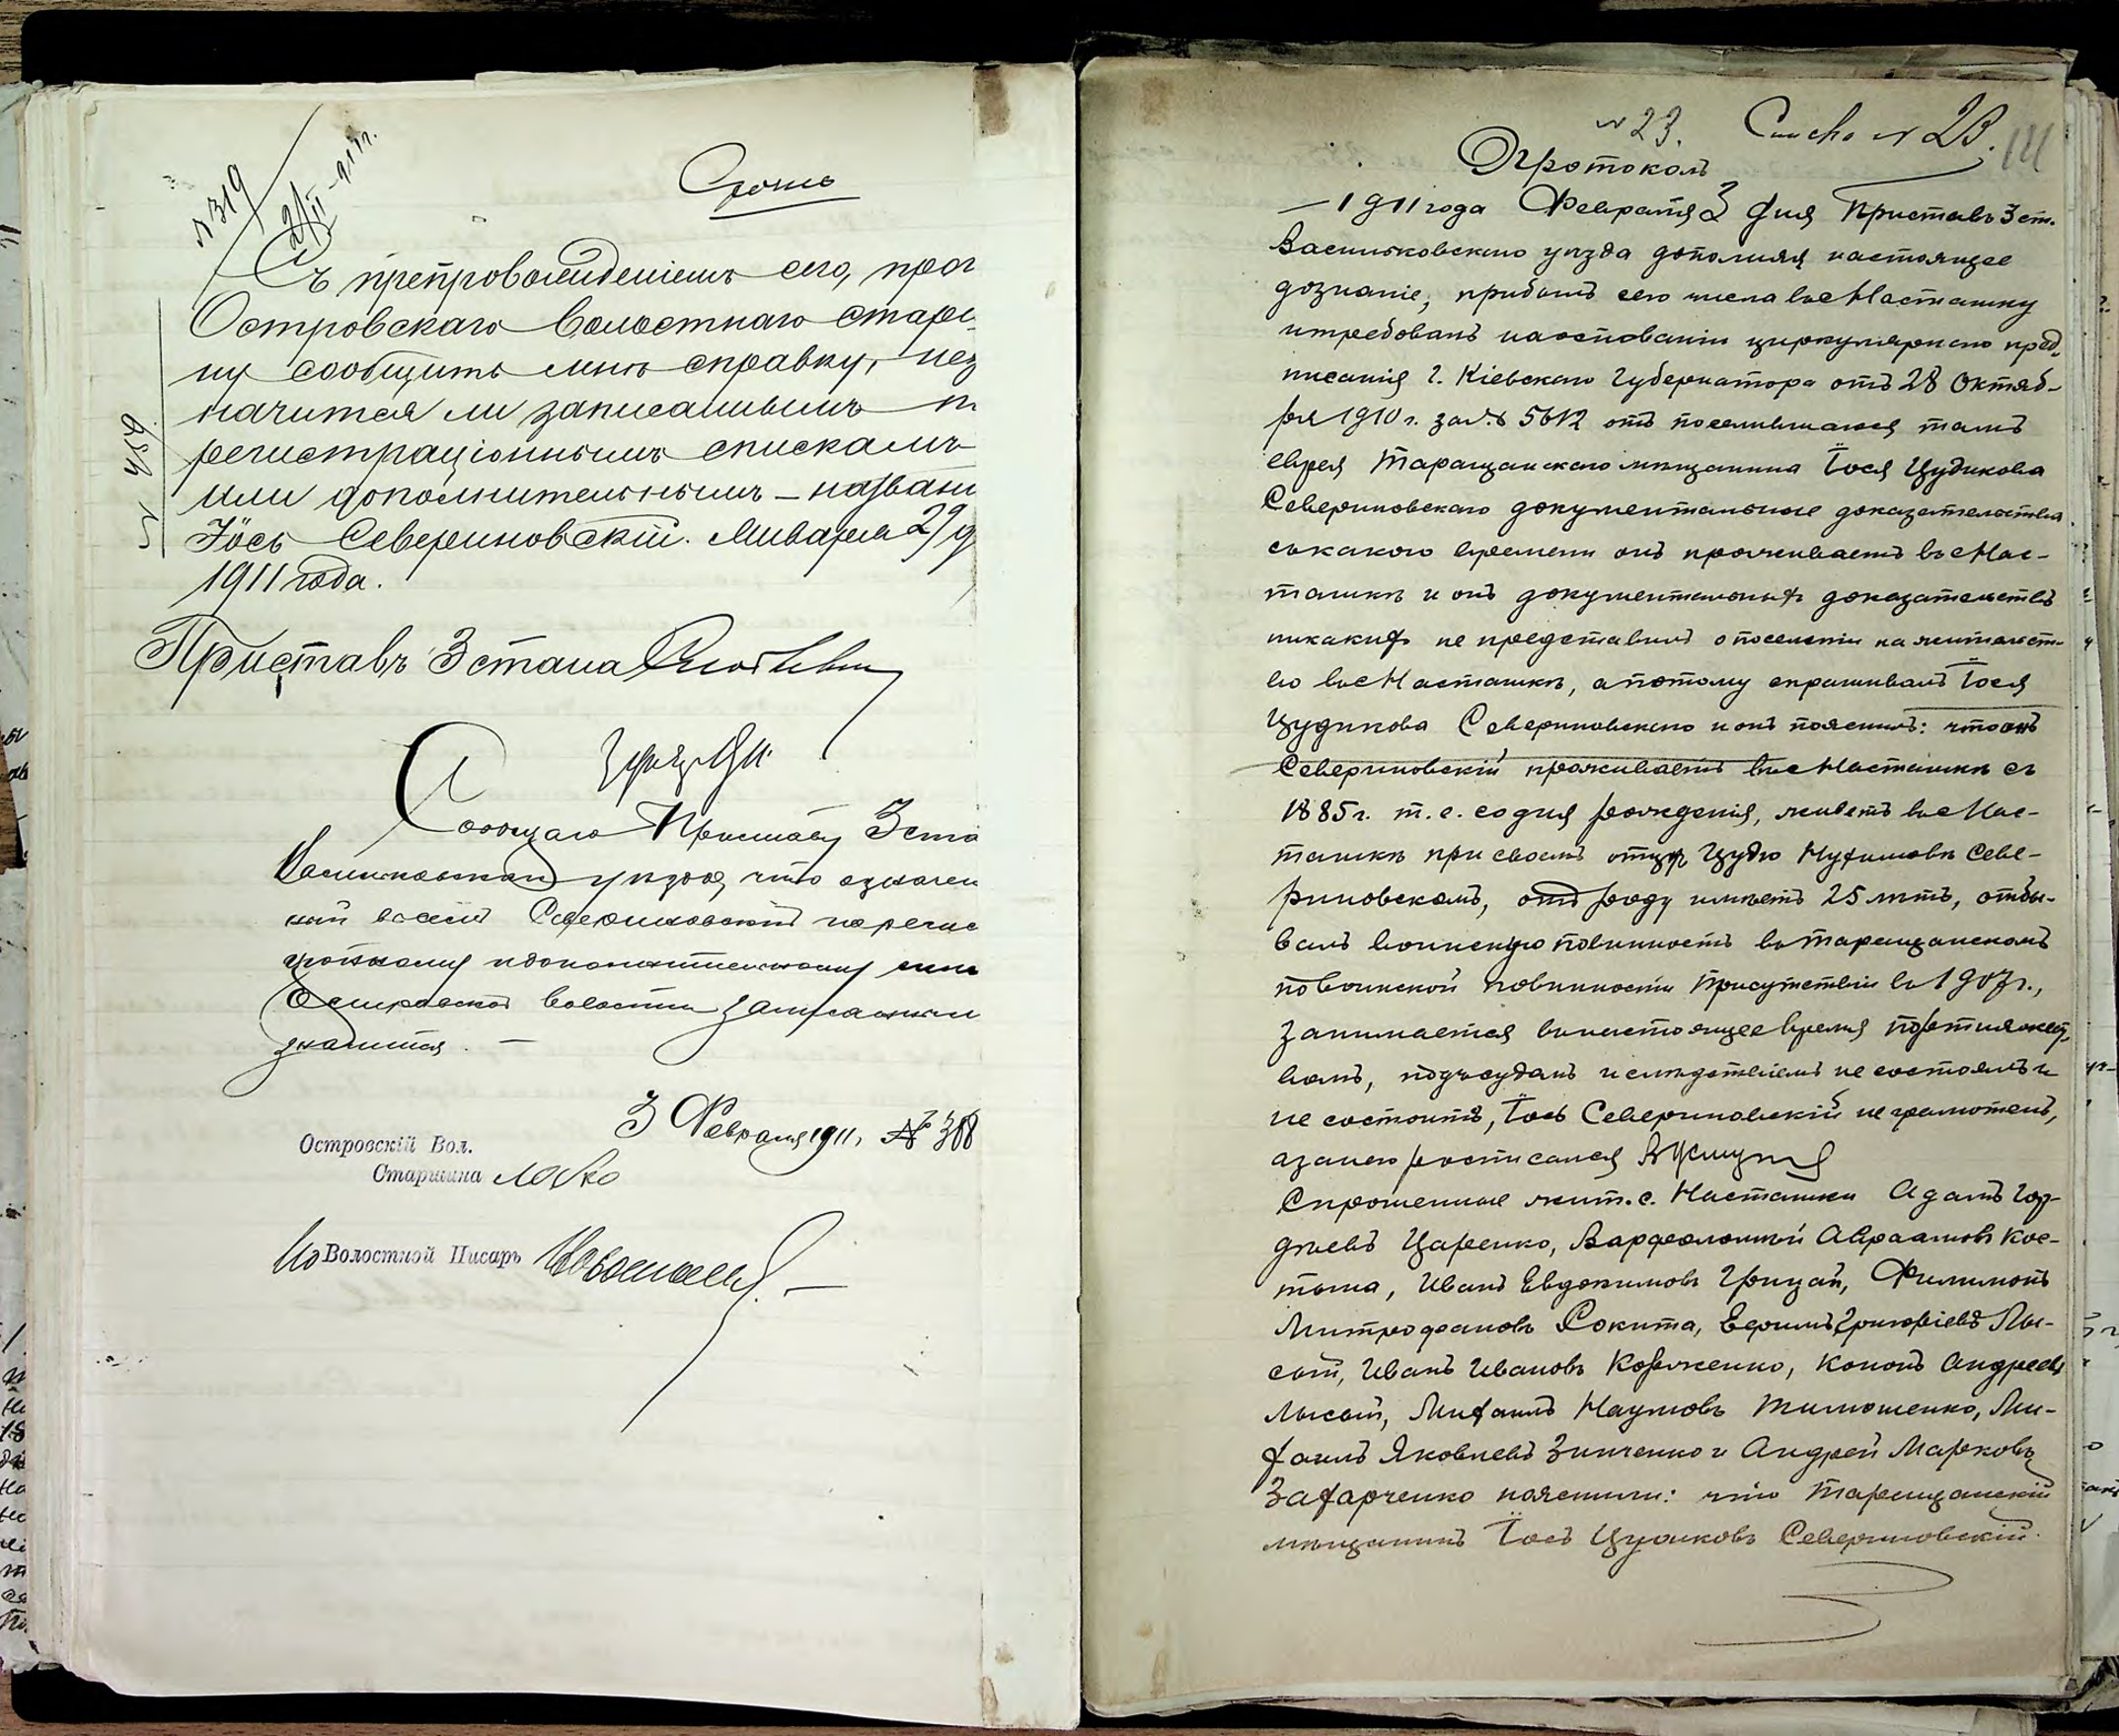 № 319
2/II 911 г.
Срочно
Съ препровожденіемъ сего, прош
Островскаго Волостнаго старши
ну сообщить мнѣ справку,
значится ли записаннымъ п
регистраціоннымъ спискамъ
или дополнительнымъ — назван
Іось Севериновскій. Января 29 д
1911 года.
Приставъ 3 стана
№ 489
Сообщаю Приставу 3 ста
Васильковскаго уѣзда, что означен
ный Севериновскій по регис
и дополнительному
Островской волости записаннымъ
значится. —
3 Февраля 1911, № 388
Островскій Вол.
Старшина
Волостной Писарь
№ 23. Списка № 23.
141
Протоколъ
1911 года Февраля 3 дня Приставъ 3 ст.
Васильковскаго уѣзда дополняя настоящее
дознаніе, прибылъ сего числа въ с Насташку
и требовалъ на основаніи циркулярнаго пред-
писанія Г. Кіевскаго Губернатора отъ 28 Октяб-
ря 1910 г. за № 5612 отъ поселившагося тамъ
еврея Таращанскаго мѣщанина Іося Цудикова
Севериновскаго документальные доказательства
съ какого времени онъ проживаетъ въ с Нас-
ташкѣ и онъ документальныхъ доказательствъ
никакихъ не представилъ о поселеніи на жительст-
во въ с Насташкѣ, а потому спрашивалъ Іося
Цудикова Севериновскаго и онъ пояснилъ: что онъ
Севериновскій проживаетъ въ с Насташкѣ съ
1885 г. т. е. со дня рожденія, живетъ въ с Нас-
ташкѣ при своемъ отцѣ Цудю Нухимовѣ Севе-
риновскомъ, отъ роду имѣетъ 25 лѣтъ, отбы-
валъ воинскую повинность въ Таращанскомъ
по воинской повинности Присутствіи въ 1907 г.,
занимается въ настоящее время портняжест-
вомъ, подъ судомъ и слѣдствіемъ не состоялъ и
не состоитъ, Іось Севериновскій не грамотенъ,
а за него росписался
Спрошенные жит. с. Насташки Адамъ Гор-
дѣевъ Царенко, Варфоломей Авраамовъ Кос-
тюта, Иванъ Евдокимовъ Грицай, Филимонъ
Митрофановъ Рокита, Ефимъ Григорьевъ Лы-
сый, Иванъ Ивановъ Корженко, Кононъ Андреевъ
Лысый, Михаилъ Наумовъ Тимошенко, Ми-
хаилъ Яковлевъ Зинченко и Андрей Марковъ
Захарченко пояснили: что Таращанскій
мѣщанинъ Іось Цудиковъ Севериновскій